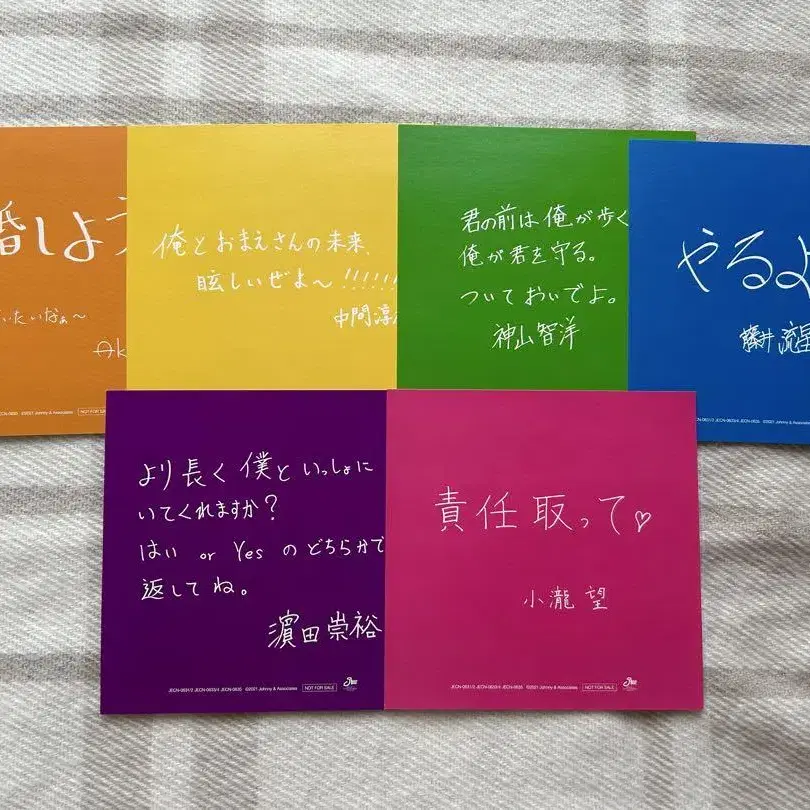 婚しよう
いたいなぁ～
Ak
JECN-0635 ©2021 Johnny & Associates NOT FOR SALE
俺とおまえさんの未来、
眩しいぜよ～!!!!!!!
中間淳
君の前は俺が歩く
俺が君を守る。
ついておいでよ。
神山智洋
やるよ
藤井流星
JECN-0631/2 JECN-0633/4 JECN-0635 ©2021 Johnny & Associates
より長く僕といっしょに
いてくれますか?
はい or Yes のどちらかで
返してね。
濵田崇裕
JECN-0631/2 JECN-0633/4 JECN-0635 ©2021 Johnny & Associates NOT FOR SALE
責任取って♡
小瀧 望
JECN-0631/2 JECN-0633/4 JECN-0635 ©2021 Johnny & Associates NOT FOR SALE